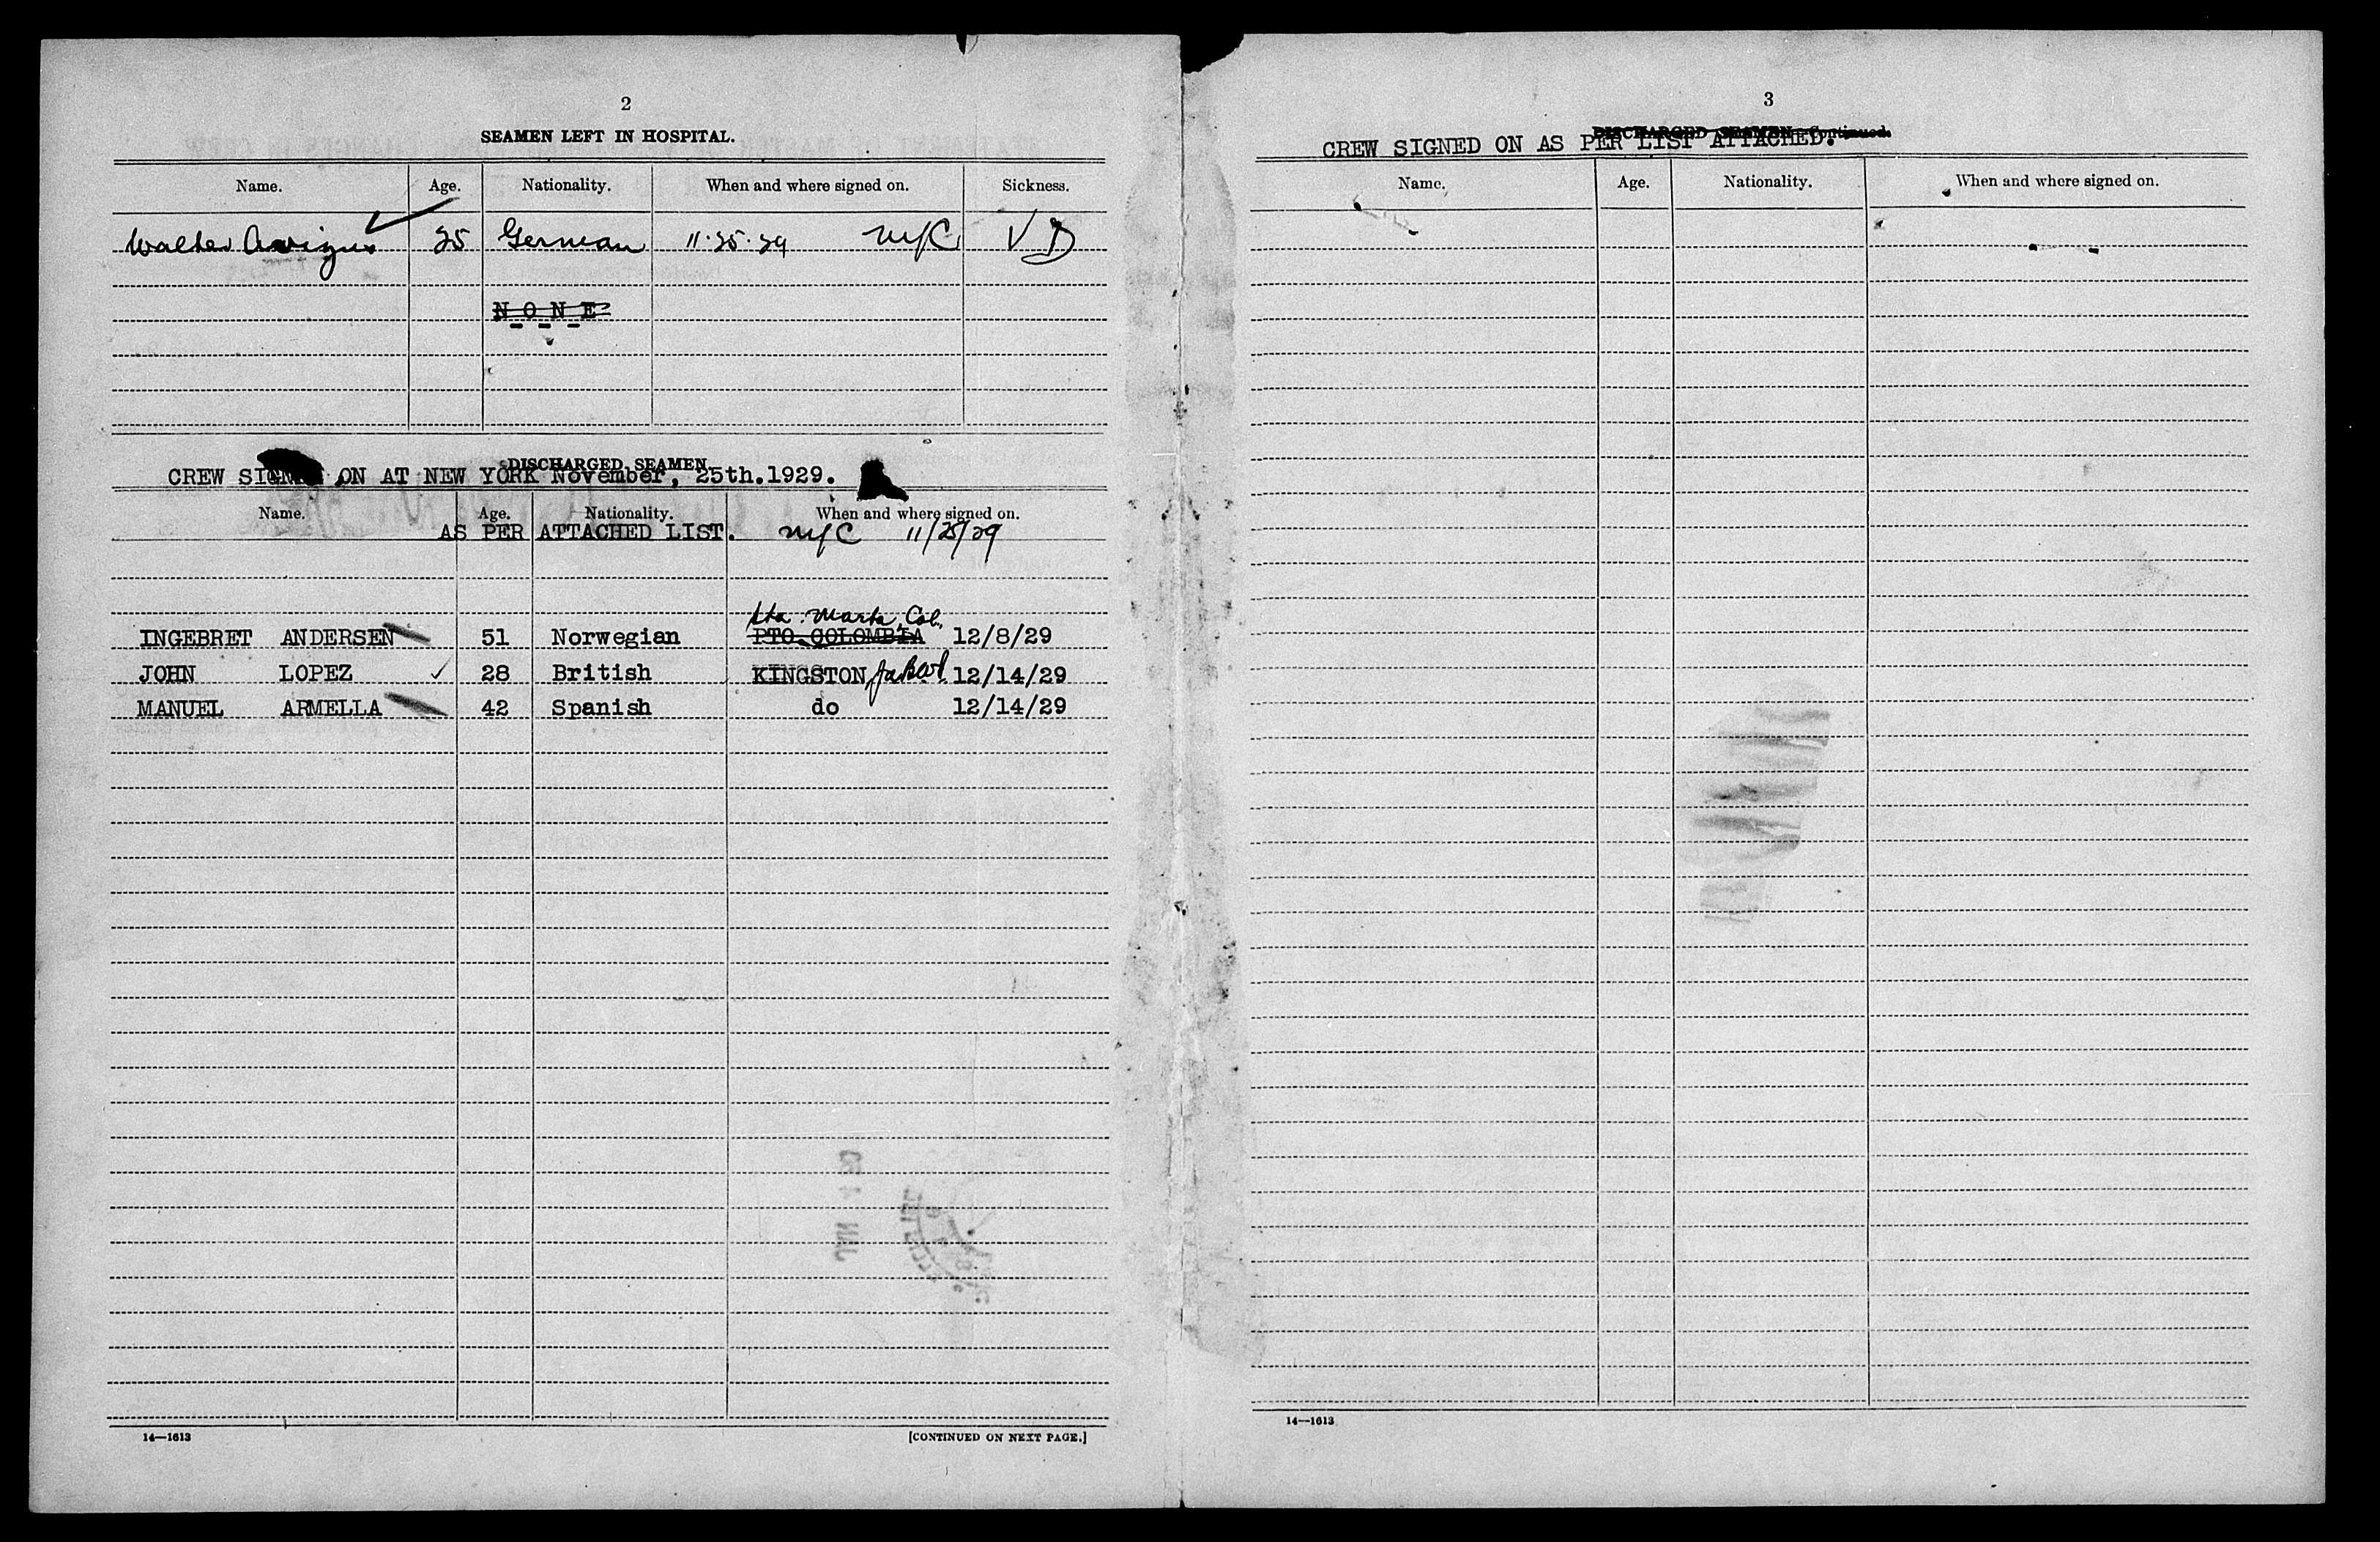 2
SEAMEN LEFT IN HOSPITAL.
Name. Age. Nationality. When and where signed on. Sickness.
Walter 25 German 11.25.29 NYC VD
NONE
DISCHARGED SEAMEN.
CREW SIGNED ON AT NEW YORK November, 25th.1929.
Name. Age. Nationality. When and where signed on.
AS PER ATTACHED LIST. NYC 11/25/29
Sta. Marta, Col.
INGEBRET ANDERSEN 51 Norwegian PTO COLOMBIA 12/8/29
JOHN LOPEZ ✓ 28 British KINGSTON 12/14/29
MANUEL ARMELLA 42 Spanish do 12/14/29
14—1613
[CONTINUED ON NEXT PAGE.]
3
DISCHARGED SEAMEN—Continued.
CREW SIGNED ON AS PER LIST ATTACHED.
Name. Age. Nationality. When and where signed on.
14—1613